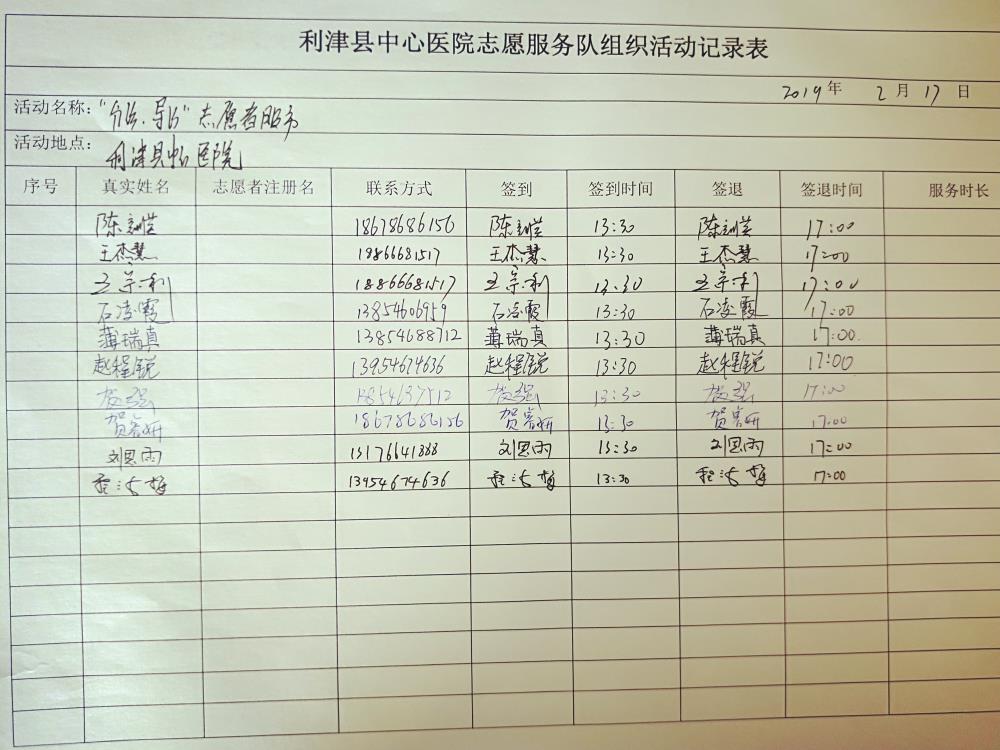 利津县中心医院志愿服务队组织活动记录表
2019年 2月17日
活动名称："分诊.导诊"志愿者服务
活动地点：利津县中心医院
序号 真实姓名 志愿者注册名 联系方式 签到 签到时间 签退 签退时间 服务时长
18678686156 13:30 17:00
王杰慧 19866681517 王杰慧 13:30 王杰慧 17:00
王宗利 18866681517 王宗利 13:30 王宗利 17:00
石凌霞 13854606959 石凌霞 13:30 石凌霞 17:00
薄瑞真 13854688712 薄瑞真 13:30 薄瑞真 17:00.
赵程锐 13954674636 赵程锐 13:30 赵程锐 17:00
13:30 17:00
18678686156 13:30 17:00
刘思雨 13176641888 刘思雨 13:30 刘思雨 17:00
13954674636 13:30 17:00